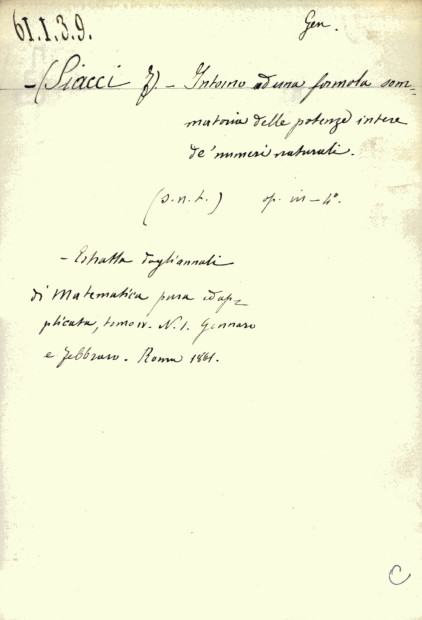 61.1.3.9.
Gen.
-(Siacci F). - Intorno ad una formola som-
matoria delle potenze intere
de' numeri naturali.
(s.n.t.) op. in-4°.
- Estratta dagli annali
di Matematica pura ed ap-
plicata, tomo IV. N. 1. Gennaro
e Febbraro. Roma 1861.
C